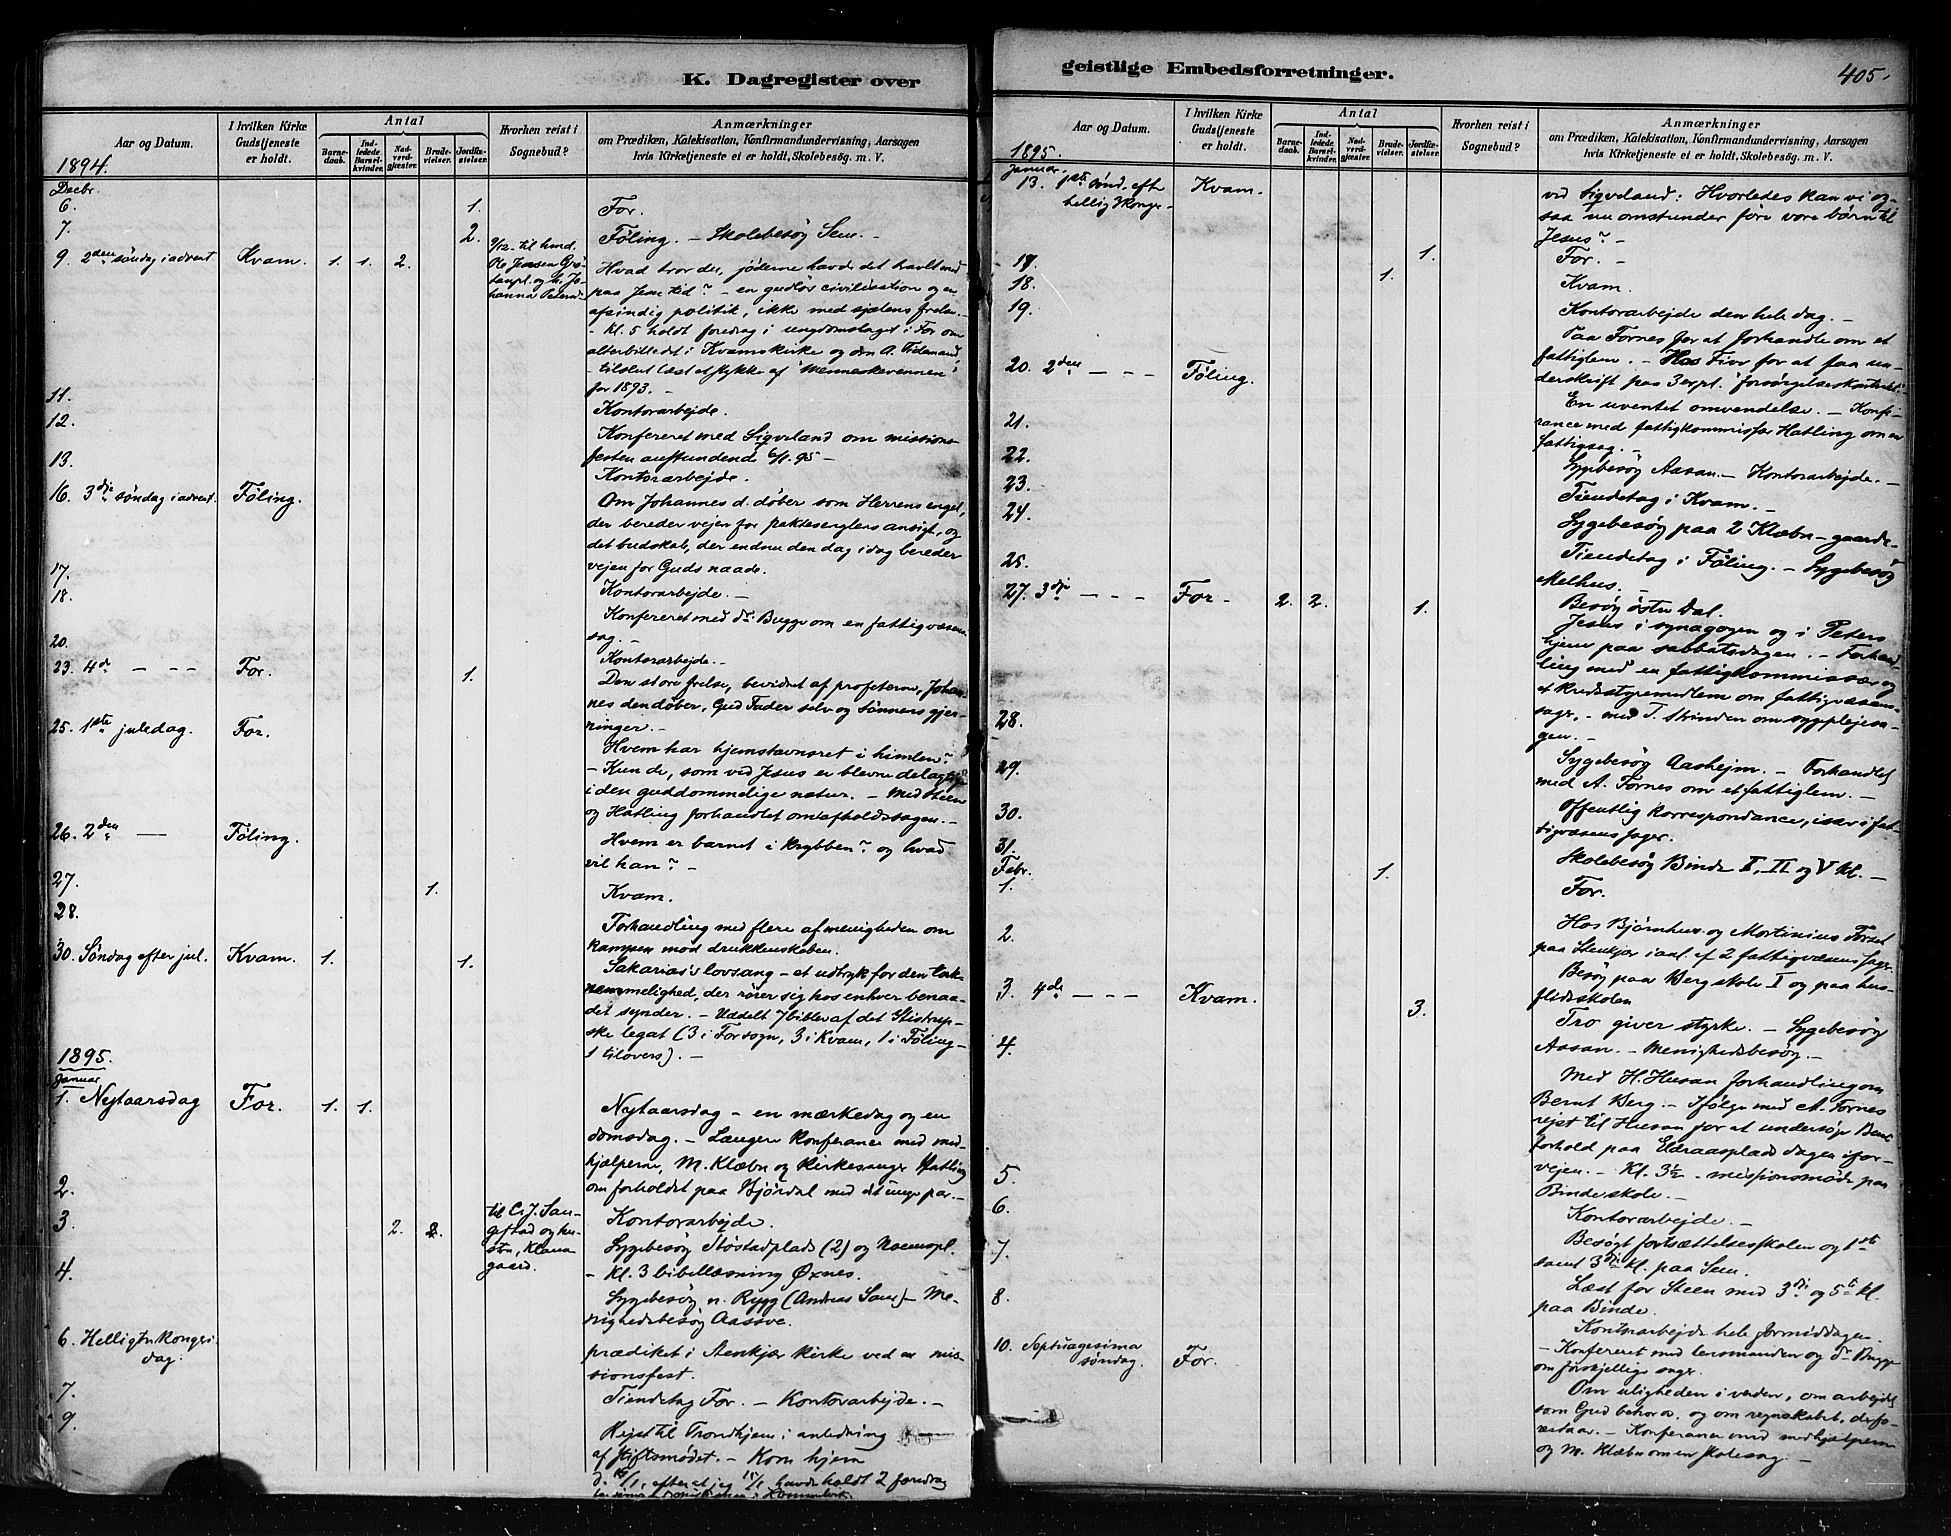 K. Dagregister over
Aar og Datum.
I hvilken Kirke Gudstjeneste er holdt.
Antal
Barnedaab.
Indledede Barselkvinder.
Nadverdgjester.
Brudevielser.
Jordfæstelser.
Hvorhen reist i Sognebud?
Anmærkninger
om Prædiken, Katekisation, Konfirmandundervisning, Aarsagen
hvis Kirketjeneste ei er holdt, Skolebesøg. m. V.
1894.
Decbr.
6. 1. For.
7. 2. Føling. — Skolebesøg Sem. —
9. 2den søndag i advent Kvam. 1. 1. 2.
Hvad tror de, jøderne havde det havt med
paa Jesu tid? — en gudløs civilisation og en
afsindig politik, ikke med sjælens frelse. —
— kl. 5 holdt foredrag i ungdomslaget i For om
alterbilledet i Kvams kirke og den A. Tidemand,
— tilslut læst et stykke af "Menneskevennen"
for 1893. —
11. Kontorarbejde.
12. Konfereret med Sigveland om missions-
festen anstundende 6/1 95 —
13. Kontorarbejde.
16. 3die søndag i advent. Føling.
Om Johannes d. døber som Herrens engel,
der bereder vejen for paktesenglens ansigt, og
det budskab, der endnu den dag i dag bereder
vejen for Guds naade.
17. Kontorarbejde. —
18. Konfereret med dr. Bugge om en fattigvæsens-
sag. —
20. Kontorarbejde. —
23. 4de — — — For. 1.
Den store frelse, bevidnet af profeterne, Johan-
nes den døber, Gud Fader selv og Sønnens gjer-
ninger. —
25. 1ste juledag. For.
Hvem har hjemstavnsret i himlen?
— Kun de, som ved Jesus er blevne delagtige
i den guddommelige natur. — Med Steen
og Hatling forhandlet om afholdssagen. —
26. 2den — Føling.
Hvem er barnet i krybben? og hvad
vil han? —
27. 1. Kvam.
28. Forhandling med flere af menigheden om
kampen mod drukkenskaben.
30. Søndag efter jul. Kvam. 1. 1.
Sakarias's lovsang — et udtryk for den tak-
nemmelighed, der rører sig hos enhver benaa-
det synder. — Uddelt 7 bibler af det Stistrup-
ske legat (3 i For sogn, 3 i Kvam, 1 i Føling —
1 tilovers). —
1895.
Januar
1. Nytaarsdag For. 1. 1.
Nytaarsdag — en mærkedag og en
domsdag. — Længere konferance med med-
hjælperne, M. Klæbu og kirkesanger Hatling
om forholdet paa Bjørdal med det unge par. —
2. Kontorarbejde.
3. 2. 2. Sygebesøg Støstadplads (2) og
— Kl. 3 bibellæsning Øxnes.
4. Sygebesøg n. Rygg (Andreas Sem) — Me-
nighedsbesøg Aassve.
6. Helligtrekongers-
dag.
prædiket i Stenkjær kirke ved en mis-
sionsfest.
7. Tiendetag For. — Kontorarbejde. —
9. Rejst til Trondhjem i anledning
af stiftsmødet. — Kom hjem
geistlige Embedsforretninger.
405.
Aar og Datum.
I hvilken Kirke Gudstjeneste er holdt.
Antal
Barnedaab.
Indledede Barselkvinder.
Nadverdgjester.
Brudevielser.
Jordfæstelser.
Hvorhen reist i Sognebud?
Anmærkninger
om Prædiken, Katekisation, Konfirmandundervisning, Aarsagen
hvis Kirketjeneste ei er holdt, Skolebesøg. m. V.
1895.
Januar.
13. 1ste sønd. efter
hellig 3 konger
Kvam.
ved Sigveland: Hvorledes kan vi og-
saa nu omstunder føre vore børn til
Jesus? —
17. 1. For. —
18. 1. Kvam.
19. Kontorarbejde den hele dag. —
Paa Fornes for at forhandle om et
fattiglem. — Hos Five for at faa un-
derskrift paa 3 expl. forsørgelseskontrakt.
20. 2den — — — Føling.
En uventet omvendelse. — Konfe-
rance med fattigkommissær Hatling om en
fattigsag. —
21.
22. Sygebesøg Aasan. — Kontorarbejde. —
23. Tiendetag i Kvam. —
24. Sygebesøg paa 2 Klæbu-gaarde
25. Tiendetag i Føling. — Sygebesøg
Melhus.
Besøg østre Dal.
27. 3die — — — For. — 2. 2. 1.
Jesus i synagogen og i Peters
hjem paa sabbatsdagen. — Forhand-
ling med en fattigkommissær og
et kredsstyremedlem om fattigvæsens-
sager, — med T. Strinden om sygeplejesa-
gen. —
28. Sygebesøg Aasheim. — Forhandlet
med A. Fornes om et fattiglem. —
29. Offentlig korrespondance, især i fat-
tigvæsenssager.
30.
31. Skolebesøg Binde II, III og V kl. —
Febr.
1. 1. For.
2. Hos Bjørnhus og Mortinius Forset
paa Stenkjær i anl. af 2 fattigvæsenssager.
Besøg paa Berg skole I og paa hus-
flidsskolen
3. 4de — — — Kvam. 3.
Tro giver styrke. — Sygebesøg
Aasan. — Menighedsbesøg. —
4. Med H. Husan forhandling om
Bernt Berg. — Ifølge med A. Fornes
rejst til Husan for at undersøge Bernts
forhold paa Eldraasplads dagen i for-
vejen. — Kl. 3½ — missionsmøde paa
Binde skole. —
5. Kontorarbejde. —
6. Besøgt fortsættelsesskolen og 1ste
samt 3die kl. paa Sem.
7. Læst for Steen med 3die og 5te kl.
paa Binde.
8. Kontorarbejde hele formiddagen.
— Konfereret med lensmanden og dr. Bugge
om forskjellige sager.
10. Septuagesima
søndag.
For.
Om uligheden i verden, om arbejdet
som Gud behøver, og om regnskabet, derfo-
restaar. — Konferance med medhjælperne
og M. Klæbu om en skolesag. —